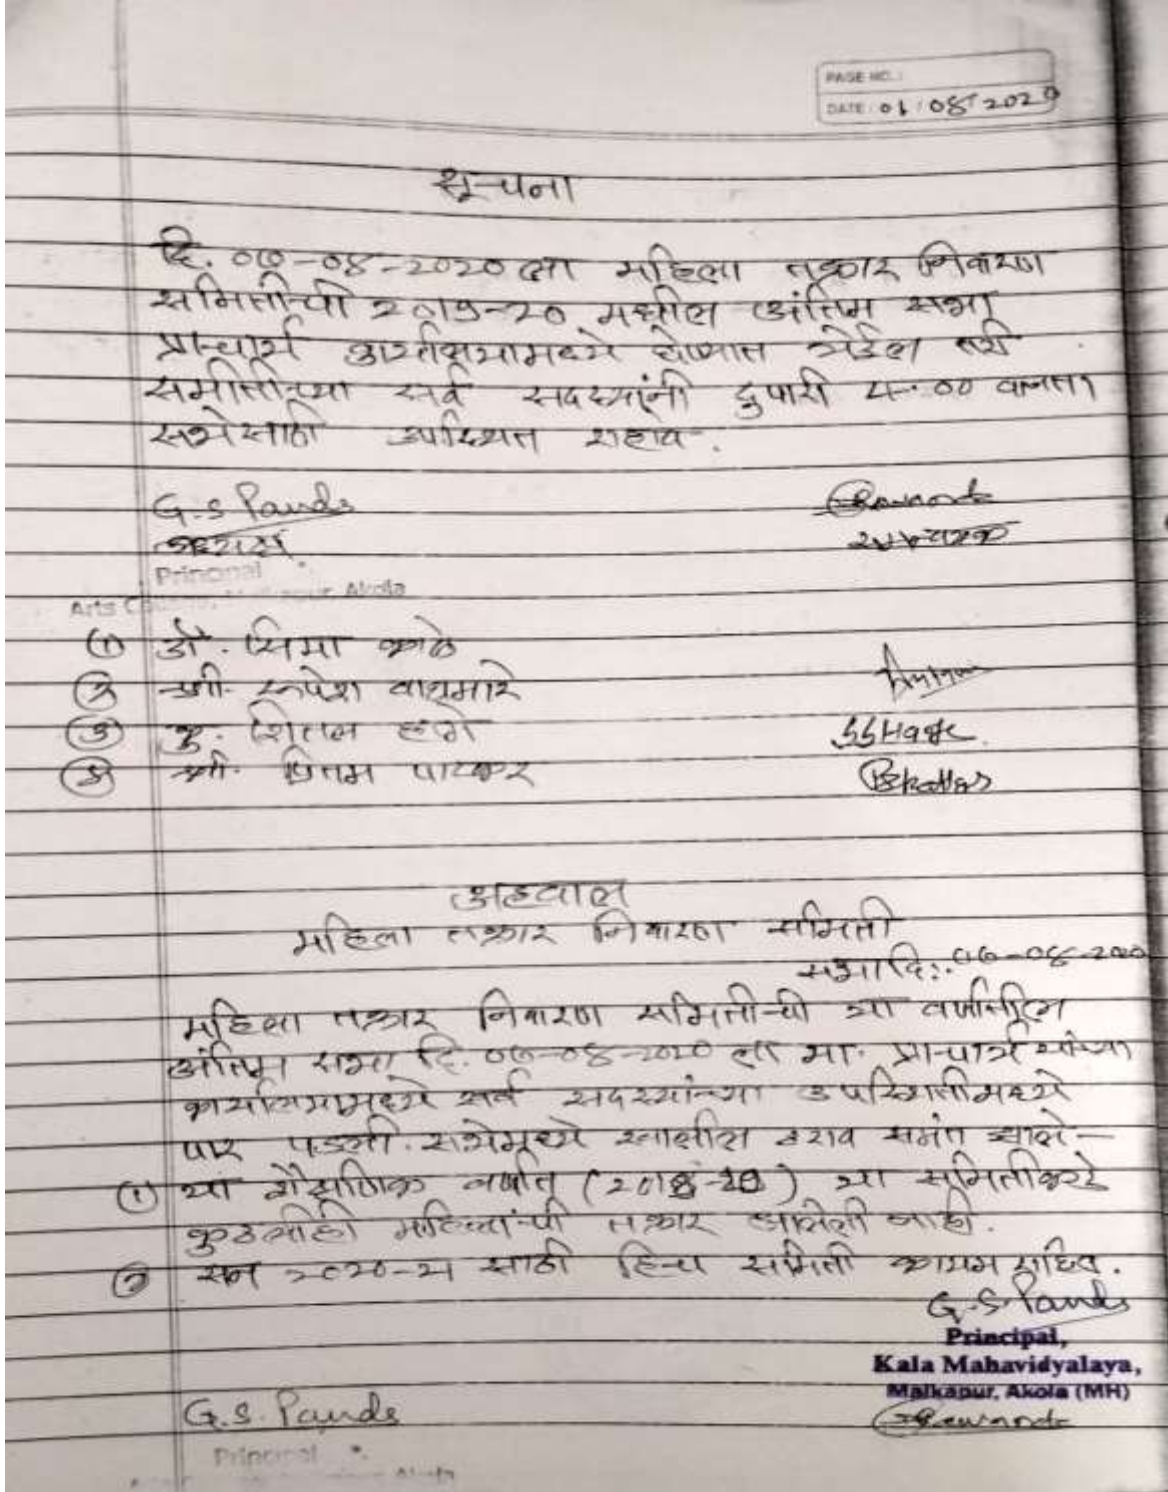 PAGE NO.:
DATE: 01/08/2020
सूचना
दि. ०७-०८-२०२० ला महिला तक्रार निवारण
समितीची २०१९-२० मधील अंतिम सभा
प्राचार्य कार्यालयामध्ये घेण्यात येईल तरी
समीतीच्या सर्व सदस्यांनी दुपारी ४.०० वाजता
सभेसाठी उपस्थित राहावे.
G.S Pande
अध्यक्ष
समन्वयक
Principal
Arts College, Malkapur, Akola
① डॉ. सिमा काळे
② श्री. रुपेश वाघमारे
③ कु. शितल हागे SSHage
④ श्री. प्रितम पाटकर
अहवाल
महिला तक्रार निवारण समिती
सभा दि:. ०७-०८-२०२०
महिला तक्रार निवारण समितीची या वर्षातील
अंतिम सभा दि. ०७-०८-२०२० ला मा. प्राचार्य यांच्या
कार्यालयामध्ये सर्व सदस्यांच्या उपस्थितीमध्ये
पार पडली. सभेमध्ये खालील ठराव संमत झाले-
① या शैक्षणिक वर्षात (२०१९-२०) या समितीकडे
कुठलीही महिलांची तक्रार आलेली नाही.
② सन २०२०-२१ साठी हिच समिती कायम राहिल.
G.S. Pande
Principal,
Kala Mahavidyalaya,
Malkapur, Akola (MH)
G.S. Pande
Principal
Akola